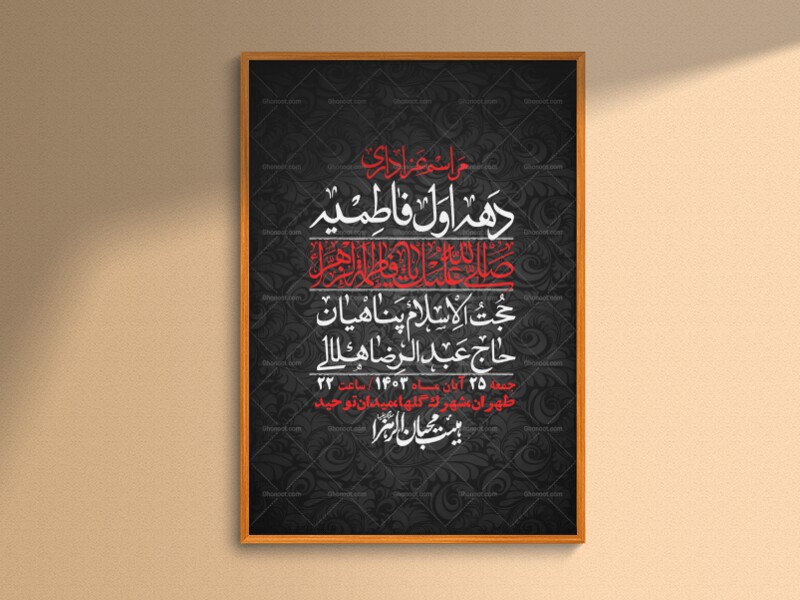 مراسم عزاداری
دهه اول فاطمیه
صلی الله علیك یا فاطمة الزهرا
حجت الاسلام پناهیان
حاج عبدالرضا هلالی
جمعه ۲۵ آبان ماه ۱۴۰۳ / ساعت ۲۲
طهران،شهرک گلها،میدان توحید
هیئت محبان الزهرا
Ghonoot.com